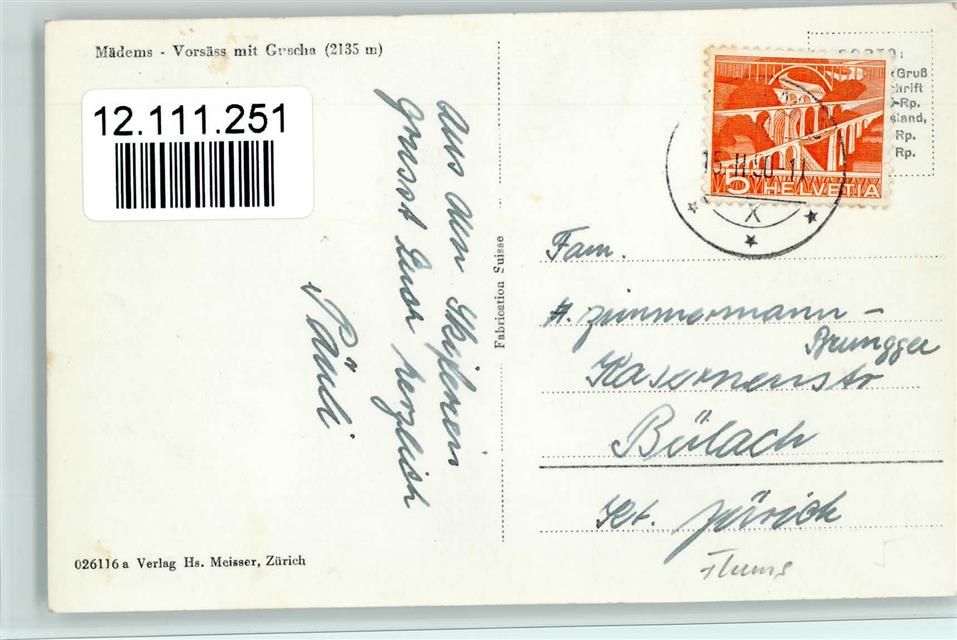 Mädems - Vorsäss mit Guscha (2135 m)
12.111.251
Aus dem Skiferien
grüsst Euch herzlich
Päuli
Fabrication Suisse
026116 a Verlag Hs. Meisser, Zürich
Gruß
hrift
Rp.
sland,
Rp.
Rp.
15.II.50-1
X
5 HELVETIA
Fam.
H. Zimmermann -
Brungger
Kasernenstr
Bülach
Kt. Zürich
Flums